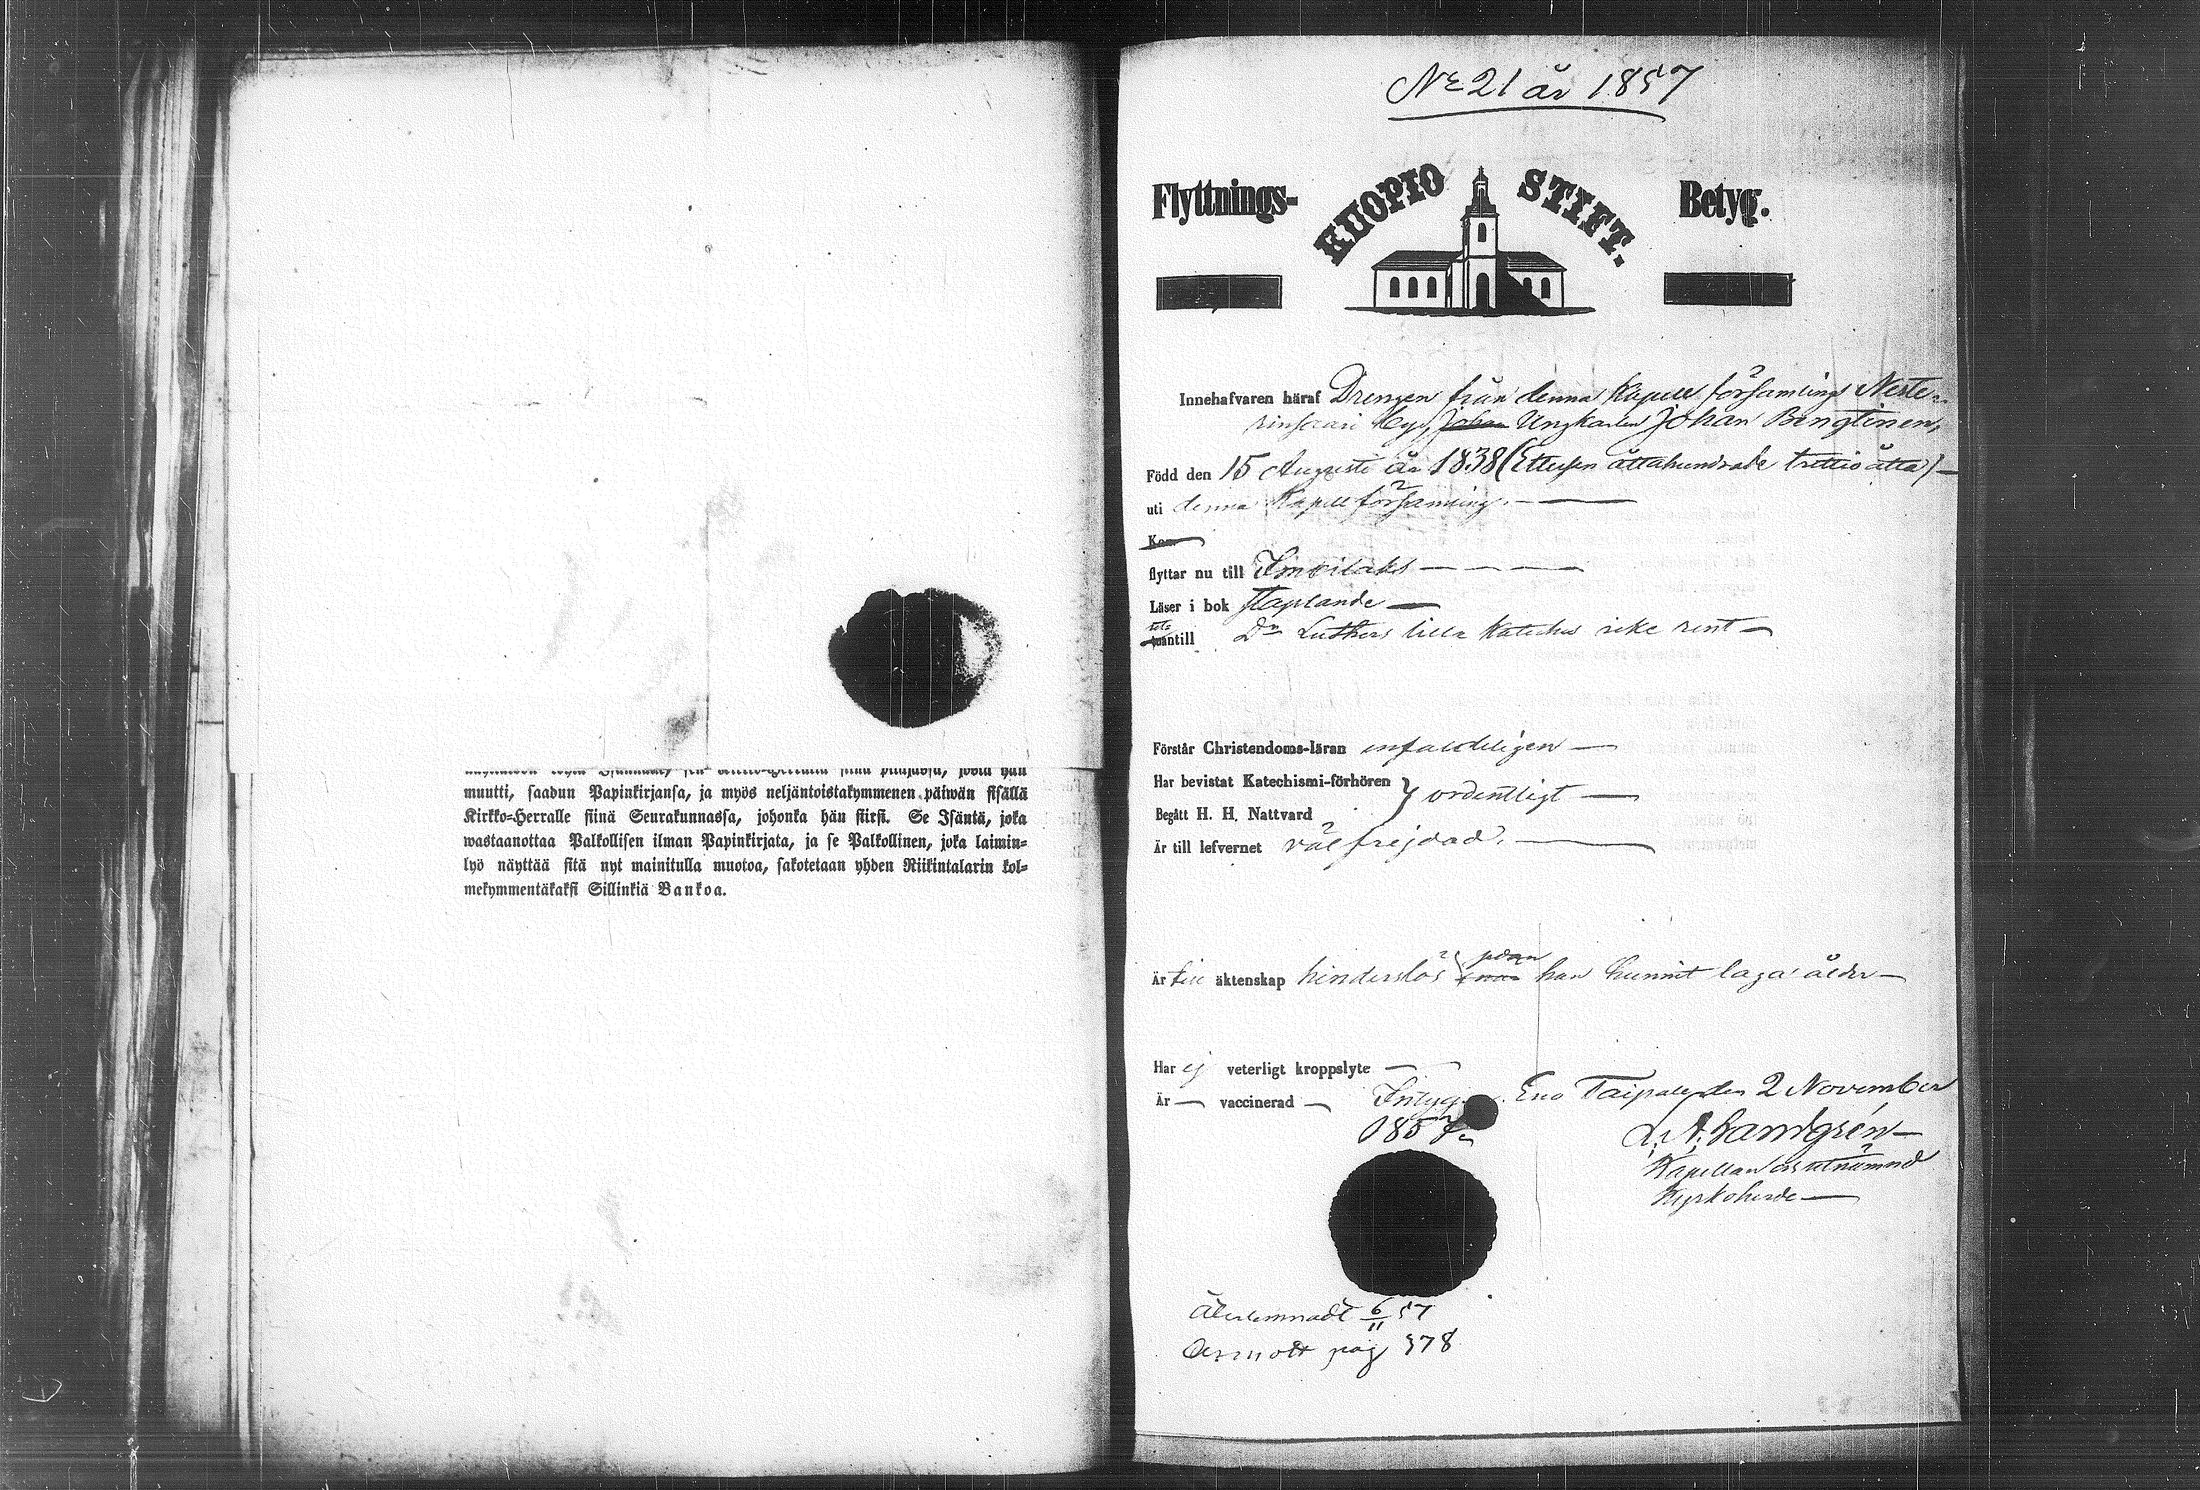 muutti, saadun Papinkirjansa, ja myös neljäntoistakymmenen päiwän sisällä
Kirkko-Herralle siinä Seurakunnassa, johonka hän siirsi. Se Isäntä, joka
wastaanottaa Palkollisen ilman Papinkirjata, ja se Palkollinen, joka laimin-
lyö näyttää sitä nyt mainitulla muotoa, sakotetaan yhden Riikintalarin kol-
mekymmentäkaksi Sillinkiä Bankoa.
No 21 år 1857
Flyttnings- KUOPIO STIFT. Betyg.
Innehafvaren häraf Drengen från denna Kapell församling Neste-
by, Johan Ungkarlen Johan Bengtinen,
Född den 15 Augusti år 1838 (Ettusen åttahundrade trettio åtta)
uti denna Kapell församling.
flyttar nu till
Läser i bok staplande
utantill Dr Luthers lilla Katches icke rent
Förstår Christendoms-läran enfaldeligen
Har bevistat Katechismi-förhören
ordentligt
Begått H. H. Nattvard
Är till lefvernet väl frejdad.
Är till äktenskap hinderslös sedan han hunnit laga ålder
Har ej veterligt kroppslyte
Är vaccinerad Intyg. Eno Taipale den 2 November
1857
A. Landgrén
Kapellan och utnämnd
Kyrkoherde
Återlemnadt 6/11 57
pag 378